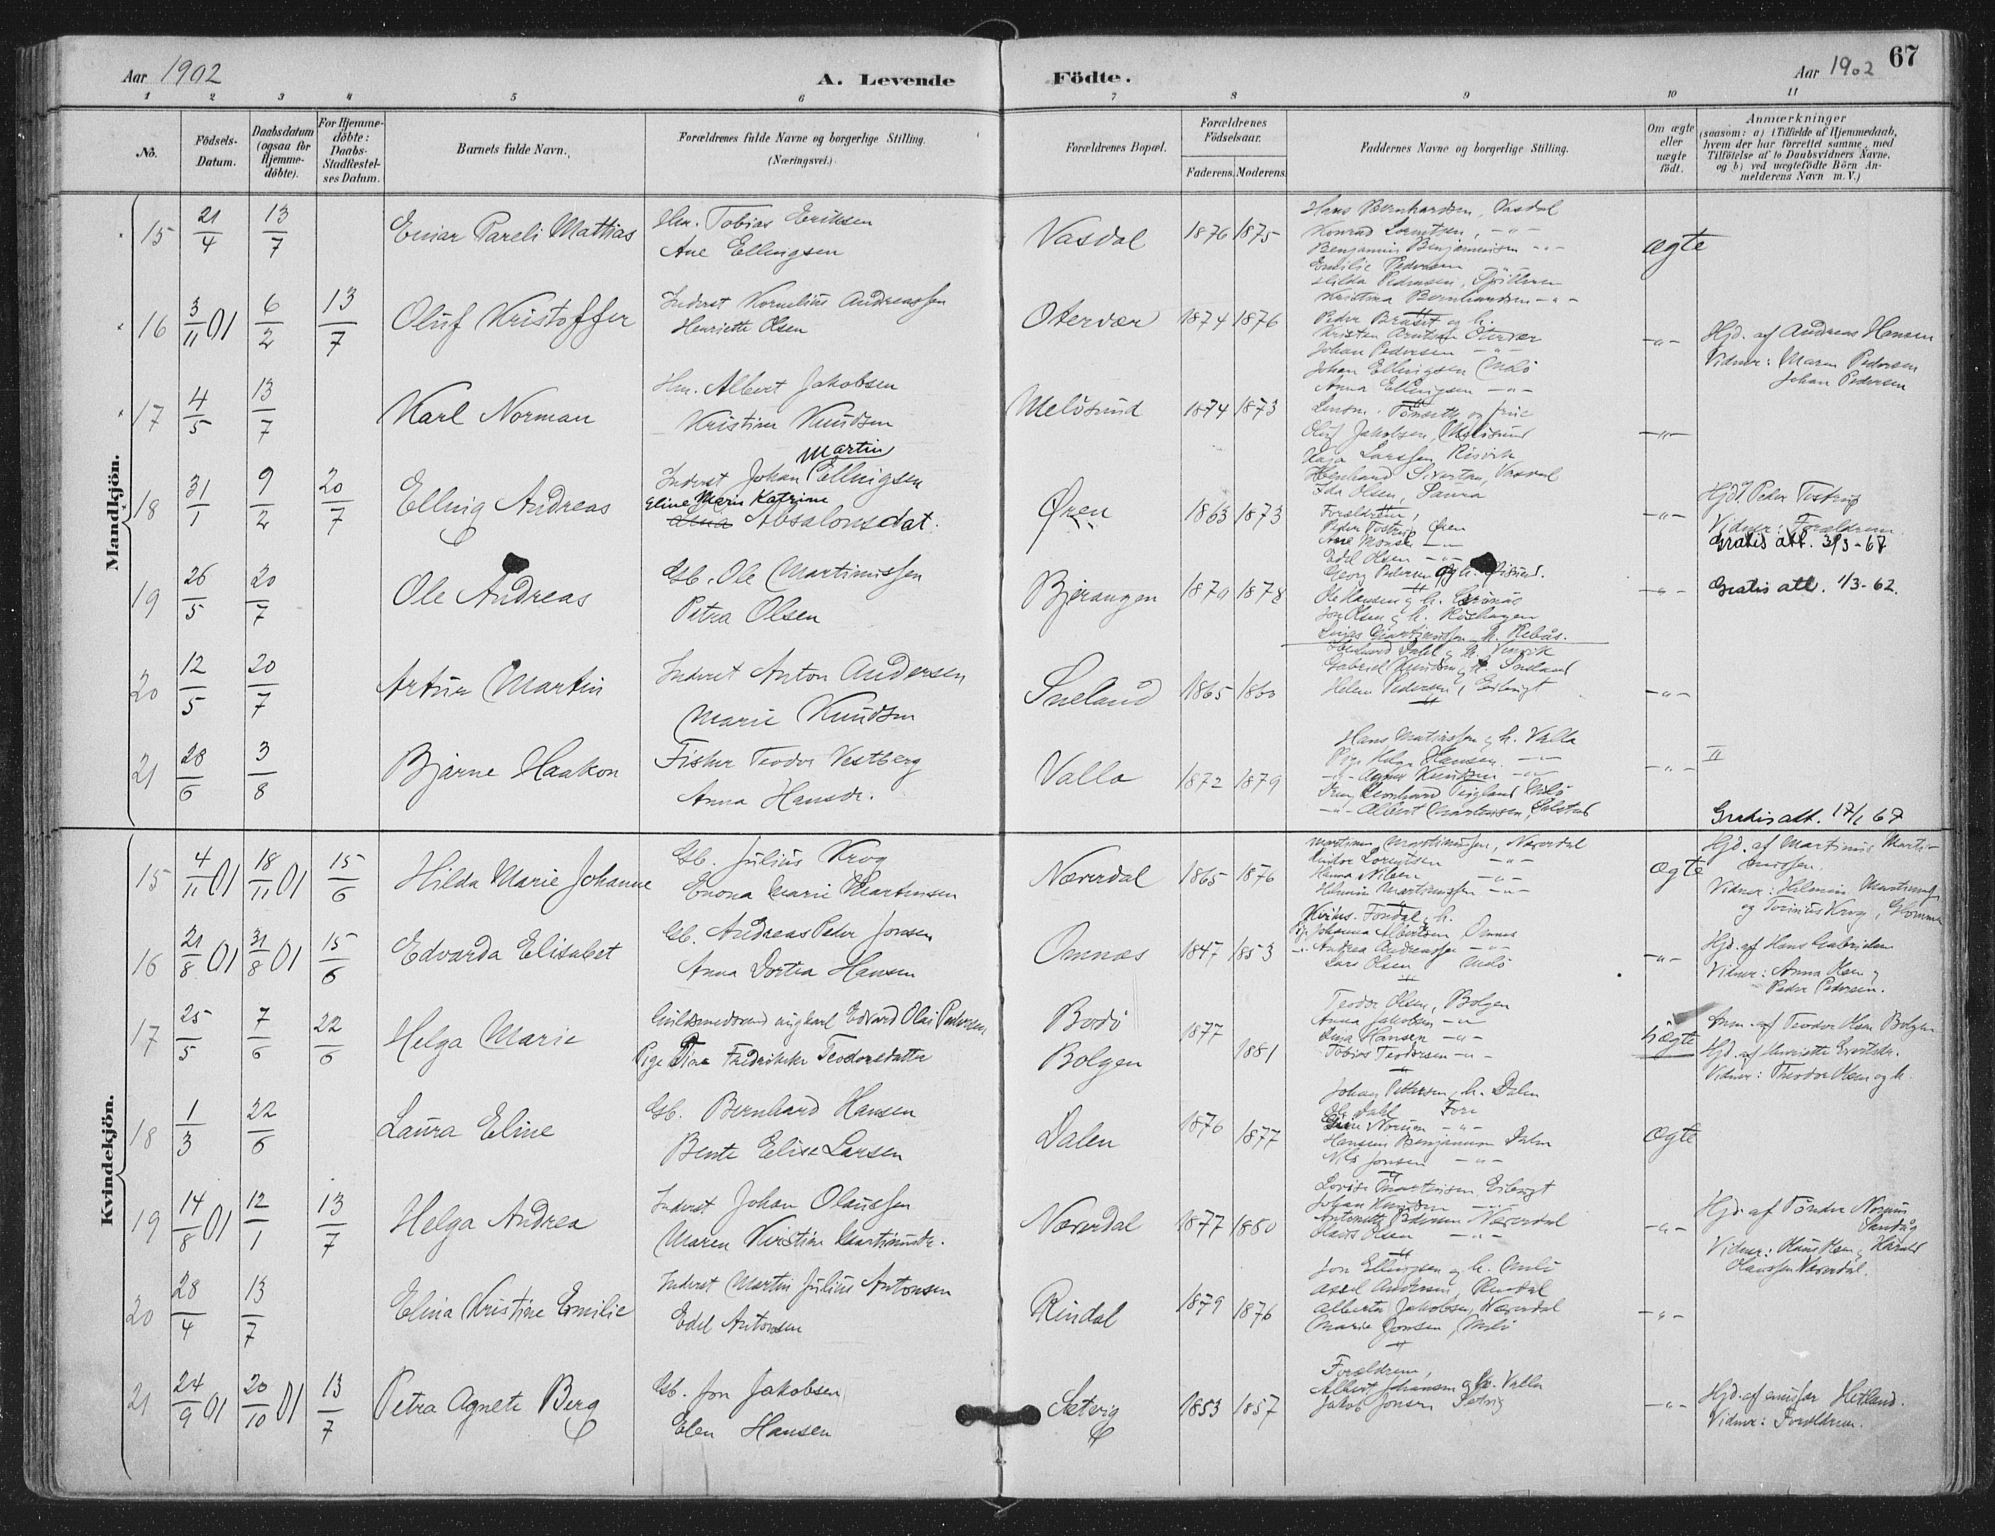 Aar 1902
A. Levende Födte.
Aar 1902
67
1 2 3 4 5 6 7 8 9 10 11
No.
Födsels-Datum.
Daabsdatum (ogsaa for Hjemme-döbte).
For Hjemme-döbte: Daabs-Stadfæstel-ses Datum.
Barnets fulde Navn.
Forældrenes fulde Navne og borgerlige Stilling.
(Næringsvei.)
Forældrenes Bopæl.
Forældrenes Födselsaar.
Faderens. Moderens.
Faddernes Navne og borgerlige Stilling.
Om ægte eller uægte födt.
Anmærkninger
(saasom: a) i Tilfælde af Hjemmedaab, hvem der har forrettet samme, med Tilföielse af to Daabsvidners Navne, og b) ved uægtefödte Börn An-melderens Navn m. V.)
Mandkjön.
15 21/4 13/7 Einar Pareli Mattias
Hm. Tobias Eriksen
Ane Ellingsen
Vasdal 1876 1875
Hans Bernhardsen, Vasdal
Konrad Lorntsen, -"-
Benjamin Benjaminsen -"-
Emilie Pedersen
Hilda Pedersen,
Kristina Bernhardsen -"-
ægte
16 3/11 01 6/2 13/7 Oluf Kristoffer
Inderst Kornelius Andreassen
Henriette Olsen
Otervær 1874 1876
Peder og h.
Kristen Otervær
Johan Pedersen -"-
Johan Ellingsen Melö
Anna Ellingsen -"-
-"-
Hjd. af Andreas Hansen
Vidner: Maren Pedersen
Johan Pedersen
17 4/5 13/7 Karl Norman
Hm. Albert Jakobsen
Kristine Knudsen
Melösund 1874 1873
Lensm. og frue
Oluf Jakobsen, Melösund
Kaja Larssen
-"-
18 31/1 9/2 20/7 Elling Andreas
Inderst Johan Martin Ellingsen
Eline Maris Katrine
Absalonsdat.
Øren 1863 1873
Ida Olsen,
Forældrene,
Peder Tostrup Øren
Ane Monsen -"-
Edel Olsen -"-
-"-
Hjd. Peder Tostrup
Vidner: Forældrene
Gratis att. 3/3-67
19 26/5 20/7 Ole Andreas
Gb. Ole Martinussen
Petra Olsen
Bjerangen 1870 1878
Georg Pedersen og h.
Ole Hansen og h. Grönås
Jon Olsen og h.
Martinussen h.
-"-
Gratis att. 1/3-62.
20 12/5 20/7 Artur Martin
Inderst Anton Andersen
Marie Knudsen
Sneland 1865 1860
Dahl og h.
Gabriel Knudsen og h. Sneland
Helene Pedersen, Esbrigt
-"-
21 28/6 3/8 Bjarne Haakon
Fisker Teodor Vestberg
Anna Hansdr.
Valla 1872 1879
Hans Matiassen og h. Valla
Pige Helga Hansen -"-
-"- Agnes Knudsen -"-
Leonhard Teigland Melö
-"- Albert Martensen,
-"-
II
Gratis att. 17/1 67
Kvindekjön.
15 4/11 01 18/11 01 15/6 Hilda Marie Johanne
Gb. Julius Krog
Enona Marie Martinsen
Næverdal 1865 1876
Martinus Martinussen, Næverdal
Lorentsen -"-
Hanna Nilsen -"-
Helmin Martinussen -"-
ægte
Hjd. af Martinus Marti-
nussen.
Vidner: Helmin Martinus
og Torinius Krog, Glommen
16 21/8 01 31/8 01 15/6 Edvarda Elisabet
Gb. Andreas Peder Jonsen
Anna Dortea Hansen
Omnæs 1847 1853
Fondal og h.
Pige Johanna Albertsen Omnes
-"- Andrea Andreassen -"-
Lars Olsen Melö
-"-
Hjd. af Hans Gabrielsen
Vidner: Anna Olsen og
Peder Pedersen.
17 25/5 7/6 22/6 Helga Marie
Guldsmedsvend ungkarl Edvard Olai Pedersen,
Pige Tina Fredrikke Teodorsdatter
Bodö
Bolgen
1877 1881
Teodor Olsen, Bolgen
Anna Jakobsen -"-
Lena Hansen -"-
Tobias Teodorsen -"-
uægte
Anm. af Teodor Olsen Bolgen
Hjd. af Henriette Evertsdr.
Vidner: Theodor Olsen og h.
18 1/3 22/6 Laura Eline
Gb. Bernhard Hansen
Bente Elise Larsen
Dalen 1876 1877
Johan Pettersen og h. Dalen
Ole Dahl Fore
Norum -"-
Hansine Benjaminsen Dalen
Nils Jonsen -"-
ægte
19 14/8 01 12/1 13/7 Helga Andrea
Inderst Johan Olaussen
Maren Kirstine Martinusdr.
Næverdal 1877 1880
Lovise Martinsen Esbrigt
Johan Knudsen -"-
Antonette Pedersen Næverdal
Olaus Olsen -"-
-"-
Hjd. af Töndur Norum
Vidner: Hans Olsen og Harald
Olaussen Næverdal.
20 28/4 13/7 Elina Kristine Emilie
Inderst Martin Julius Antonsen
Edel Antonsen
Rendal 1879 1876
Jon Ellingsen og h. Melö
Axel Andersen Rendal
Alberta Jakobsen, Næverdal
Marie Jonsen, Melö
-"-
21 24/9 01 20/10 01 13/7 Petra Agnete Berg
Gb. Jon Jakobsen
Elen Hansen
Sætvig 1853 1857
Forældrene,
Albert Johansen og h. Valla
Jakob Jonsen Setvig
-"-
Hjd. af emisær Hetland.
Vidner: Forældrene.